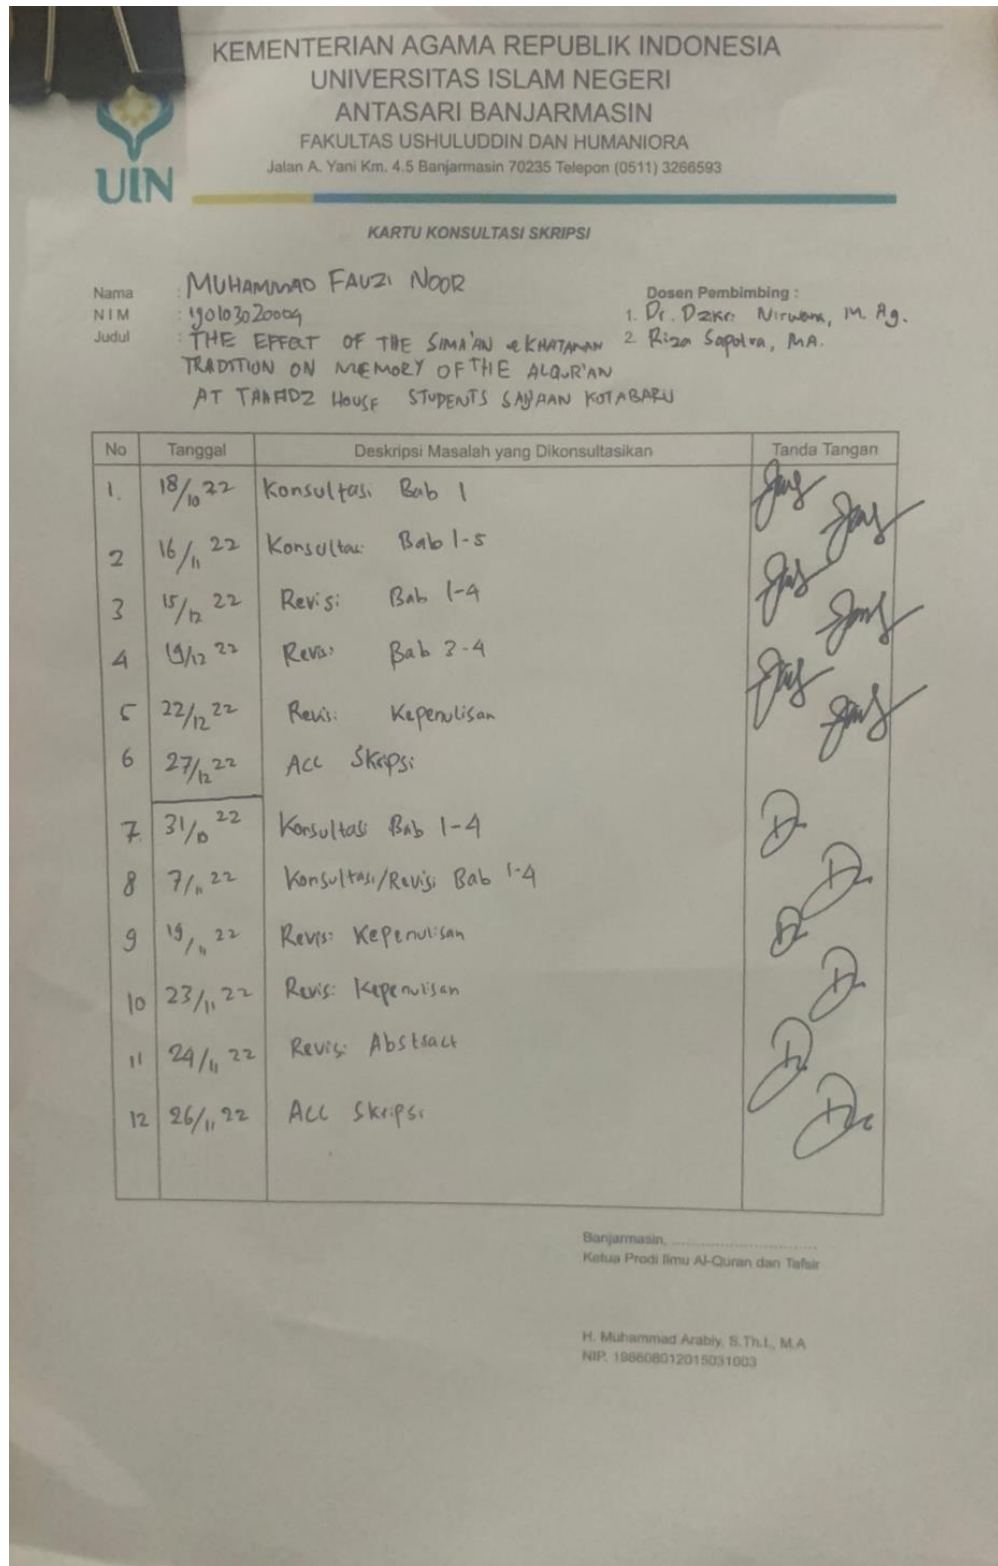 KEMENTERIAN AGAMA REPUBLIK INDONESIA
UNIVERSITAS ISLAM NEGERI
ANTASARI BANJARMASIN
FAKULTAS USHULUDDIN DAN HUMANIORA
Jalan A. Yani Km. 4.5 Banjarmasin 70235 Telepon (0511) 3266593
UIN
KARTU KONSULTASI SKRIPSI
Nama : MUHAMMAD FAUZI NOOR
NIM : 190103020004
Judul : THE EFFECT OF THE SIMA'AN & KHATAMAN
TRADITION ON MEMORY OF THE ALQUR'AN
AT TAHFIDZ HOUSE STUDENTS SAIJAAN KOTABARU
Dosen Pembimbing :
1. Dr. Dzikri Nirwana, M. Ag.
2. Riza Saputra, MA.
No Tanggal Deskripsi Masalah yang Dikonsultasikan Tanda Tangan
1. 18/10 22 Konsultasi Bab 1
2 16/11 22 Konsultasi Bab 1-5
3 15/12 22 Revisi Bab 1-4
4 19/12 22 Revisi Bab 3-4
5 22/12 22 Revisi Kepenulisan
6 27/12 22 ACC Skripsi
7. 31/10 22 Konsultasi Bab 1-4
8 7/11 22 Konsultasi/Revisi Bab 1-4
9 19/11 22 Revisi Kepenulisan
10 23/11 22 Revisi Kepenulisan
11 24/11 22 Revisi Abstract
12 26/11 22 ACC Skripsi
Banjarmasin, ................................
Ketua Prodi Ilmu Al-Quran dan Tafsir
H. Muhammad Arabiy, S.Th.I., M.A
NIP. 198608012015031003